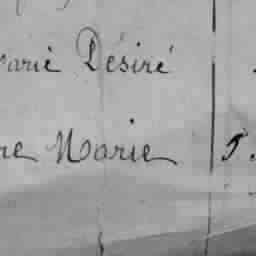 Marie Désiré
re Marie 5.